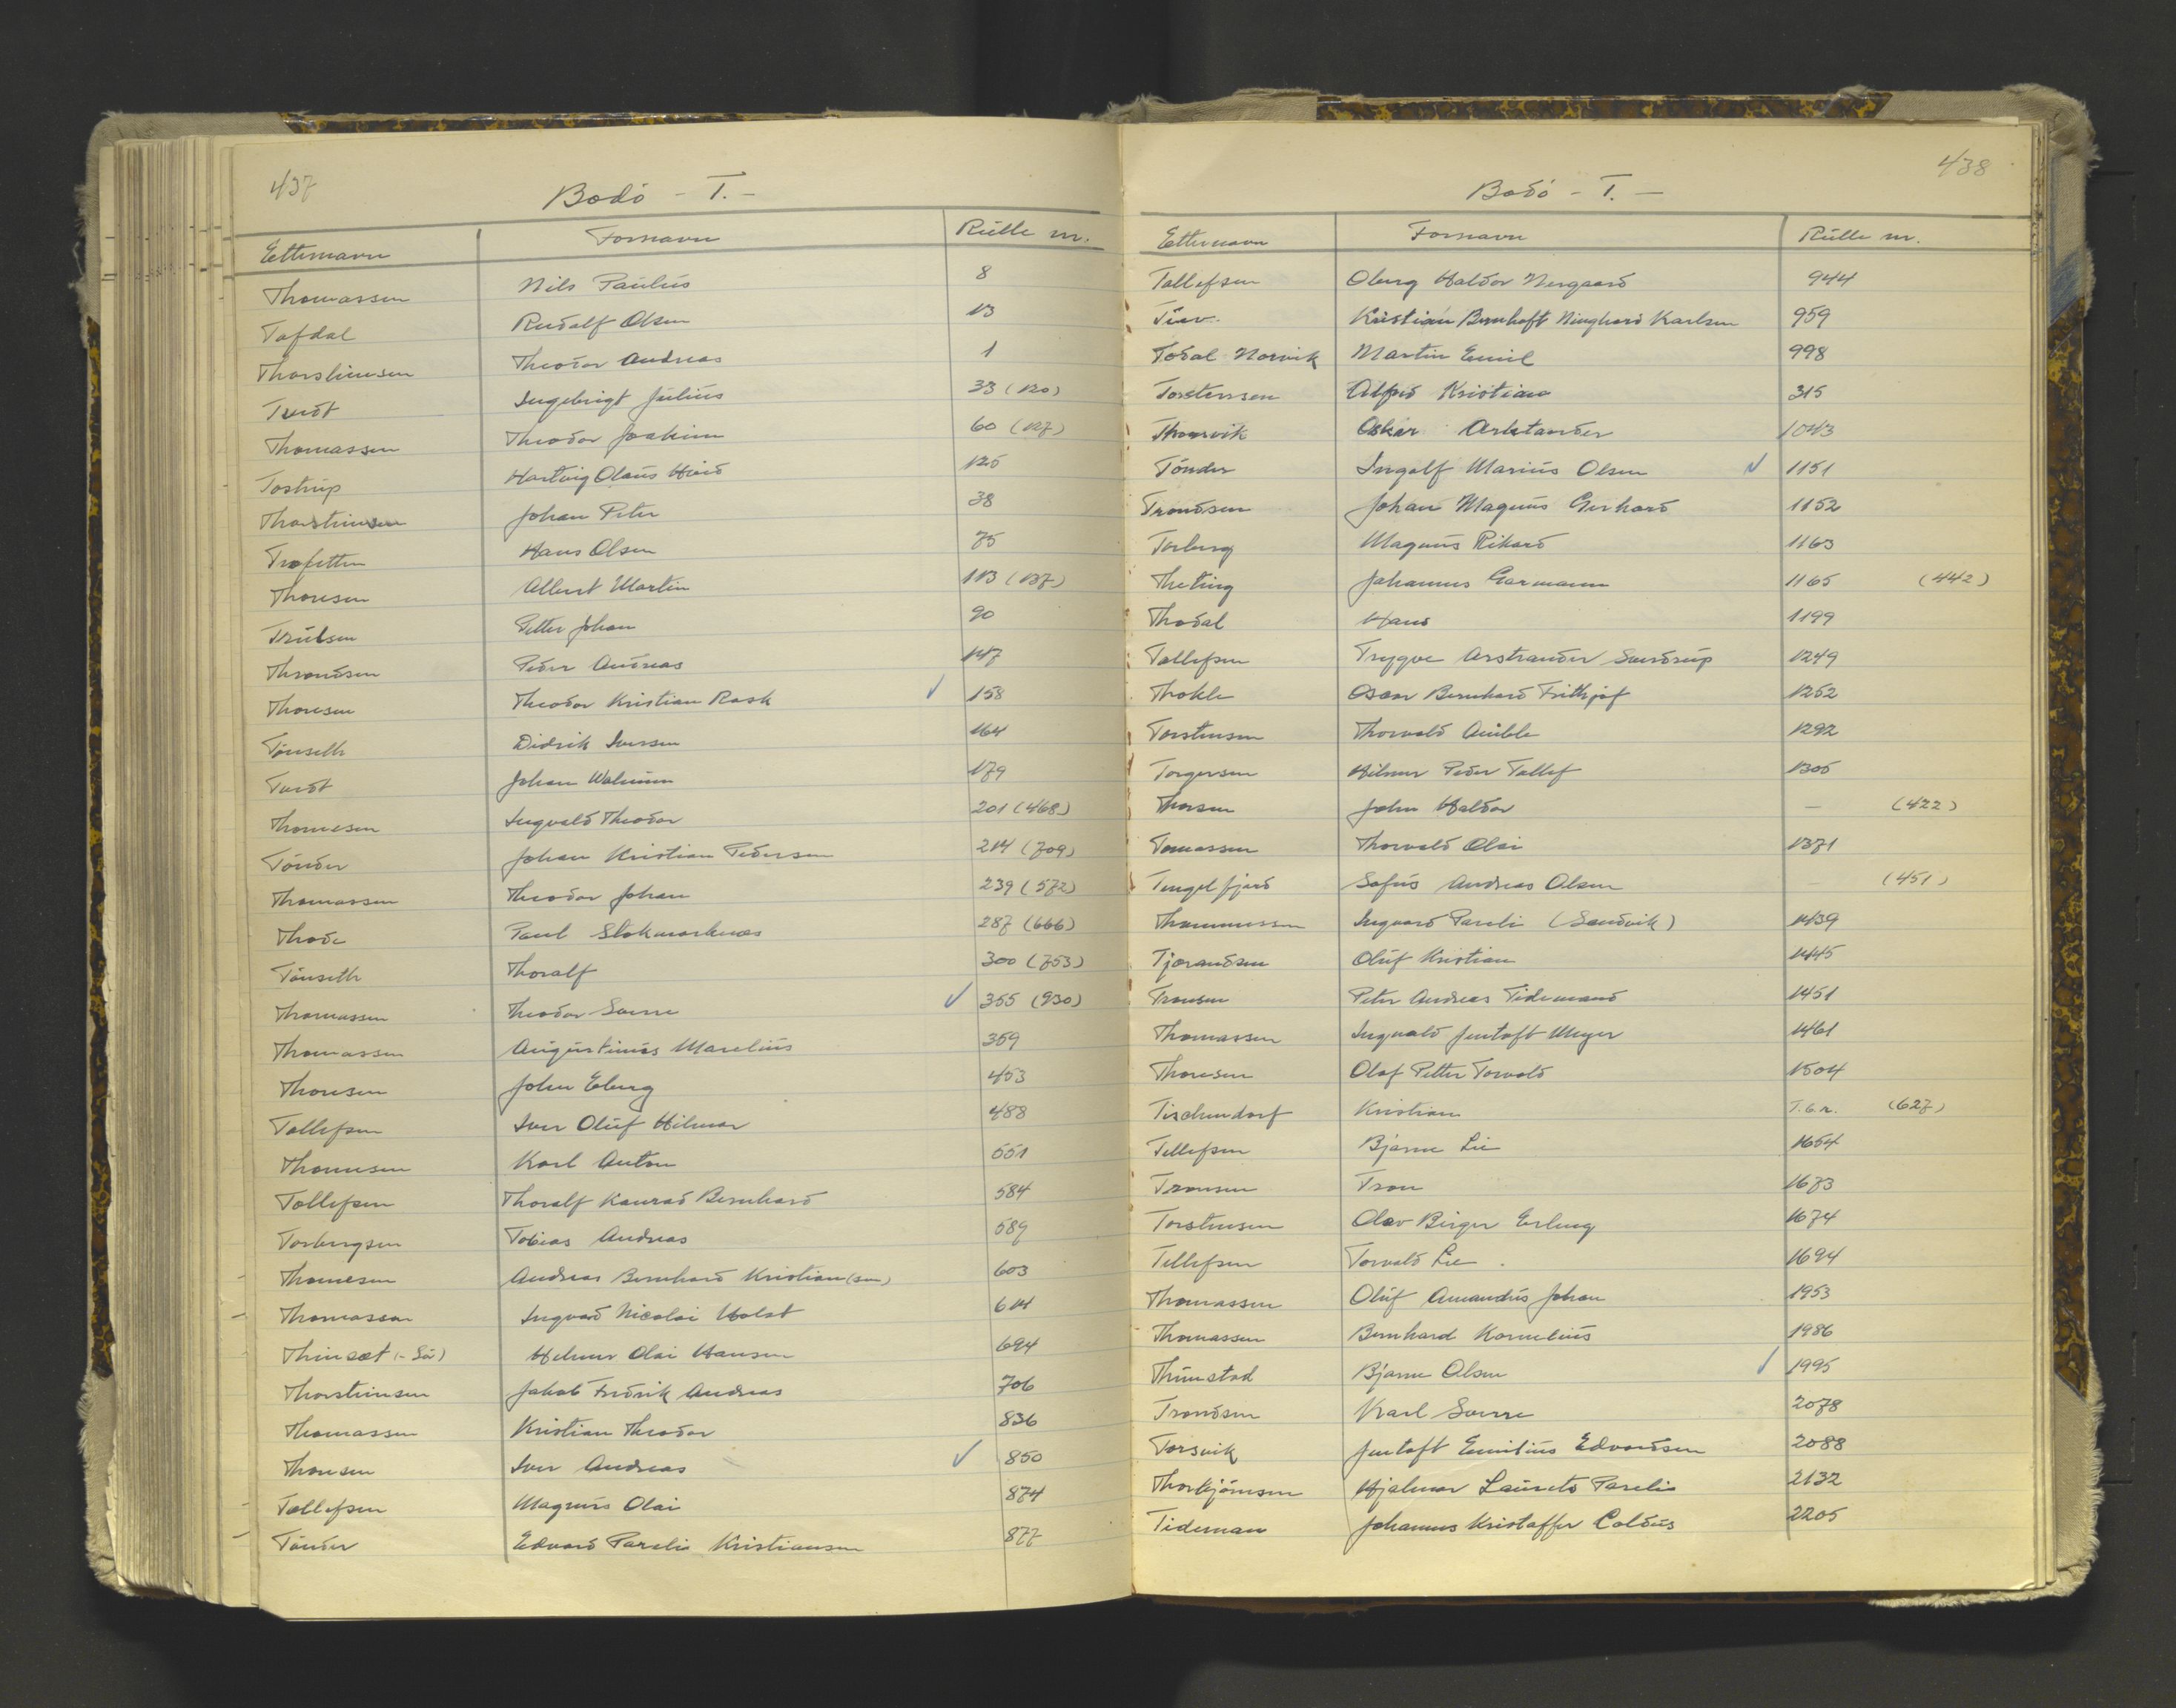 437
Bodó - T. -
Etternavn Fornavn Rulle nr.
Thomassen Nils Paulus 8
Tofdal Rudolf Olsen 13
Thorsteinsen Theodor Andreas 1
Tverdt Ingebrigt Julius 33 (120)
Thomassen Theodor Joakim 60 (127)
Tostrup Hartvig Olaus 125
Thorsteinsen Johan Peter 38
Trofetten Hans Olsen 75
Thoresen Albert Martin 113 (137)
Trulsen Petter Johan 90
Throndsen Peder Andreas 147
Thoresen Theodor Kristian Rask ✓ 158
Tönseth Didrik Iversen 164
Tverdt Johan 179
Thomesen Ingvald Theodor 201 (468)
Tönder Johan Kristian Pedersen 214 (709)
Thomassen Theodor Johan 239 (572)
Thode Paul Stokmarknes 287 (666)
Tönseth Thoralf 300 (753)
Thomassen Theodor Sverre ✓ 355 (930)
Thomassen Augustinus Marelius 359
Thoresen John Eberg 453
Tollefsen Iver Oluf Hilmar 488
Thomesen Karl Anton 551
Tollefsen Thoralf Konrad Bernhard 584
Torbergsen Tobias Andreas 589
Thomesen Andreas Bernhard Kristian (sen) 603
Thomassen Ingvard Nicolai Holst 614
Hilmar Olai Hansen 694
Thorsteinsen Jakob Fredrik Andreas 706
Thomassen Kristian Theodor 836
Thonsen Iver Andreas ✓ 850
Tollefsen Magnus Olai 874
Tönder Edvard Parelis Kristiansen 877
438
Bodó - T. -
Etternavn Fornavn Rulle nr.
Tollefsen Oberg Haldor Nergaard 944
Kristian Bernhoft Karlsen 959
Todal Norvik Martin Emil 998
Torstensen Alfred Kristian 315
Thorsvik Oskar 1043
Tönder Ingolf Marius Olsen ✓ 1151
Trondsen Johan Magnus Gerhard 1152
Torberg Magnus Rikard 1163
Theting Johannes Garmann 1165 (442)
Thodal Hans 1199
Tollefsen Trygve Arstrander Sverdrup 1249
Thokle Oscar Bernhard Frithjof 1252
Torstensen Thorvald 1292
Torgersen Hilmar Peder Tollef 1305
Thorsen John Haldor — (422)
Tomassen Thorvald Olai 1371
Tengelfjord Sofus Andreas Olsen — (451)
Thommessen Ingvard Pareli (Sandvik) 1439
Tjorandsen Oluf Kristian 1445
Tronsen Peter Andreas Tidemand 1451
Thomassen Ingvald Jentoft Meyer 1461
Thoresen Olaf Petter Torvald 1504
Tischendorf Kristian T.b.r. (627)
Tellefsen Bjarne Lie 1654
Tronsen Tron 1673
Torstensen Olav Birger Erling 1674
Tellefsen Torvald Lie 1694
Thomassen Oluf Amandus Johan 1953
Thomassen Bernhard Kornelius 1986
Thunstad Bjarne Olsen ✓ 1995
Trondsen Karl Sverre 2078
Torsvik Jentoft Emilius Edvardsen 2088
Thorbjörnsen Hjalmar Laurets Parelis 2132
Tideman Johannes Kristoffer Coldus 2205